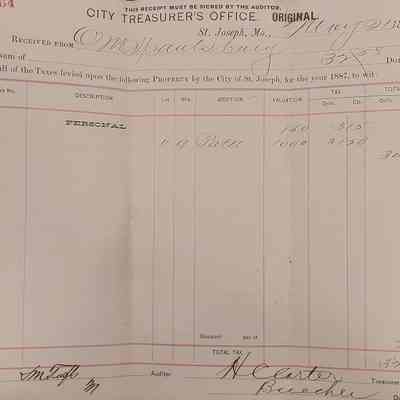 54
THIS RECEIPT MUST BE SIGNED BY THE AUDITOR.
CITY TREASURER'S OFFICE. ORIGINAL.
St. Joseph, Mo., May 21
RECEIVED FROM
sum of 32 58 Do
all of the Taxes levied upon the following PROPERTY by the City of St. Joseph, for the year 1887, to wit:
No. DESCRIPTION Lot Blk. ADDITION VALUATION TAX TOTAL
Dols. Cts. Dols.
PERSONAL 150
1000
Discount per ct
TOTAL TAX
Auditor H C Carter Treasurer
Buecher